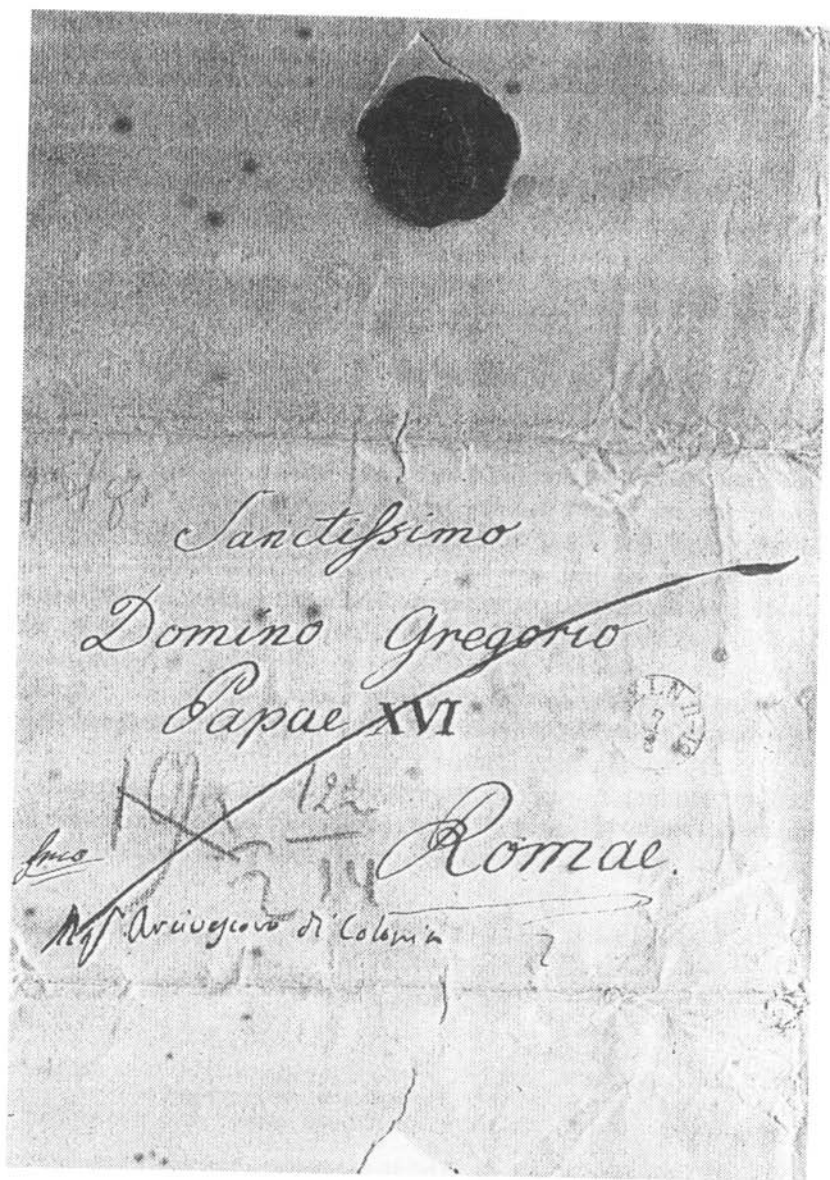 Sanctissimo
Domino Gregorio
Papae XVI
122
14
Romae.
Arcivescovo di Colonia